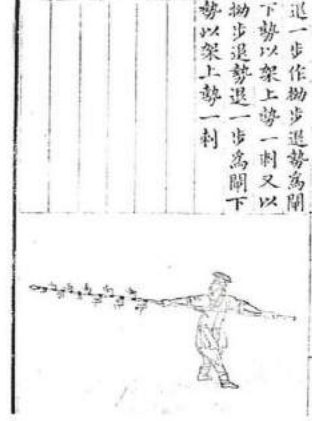 退一步作拗步退勢為閘
下勢以架上勢一刺又以
拗步退勢退一步為閘下
勢以架上勢一刺